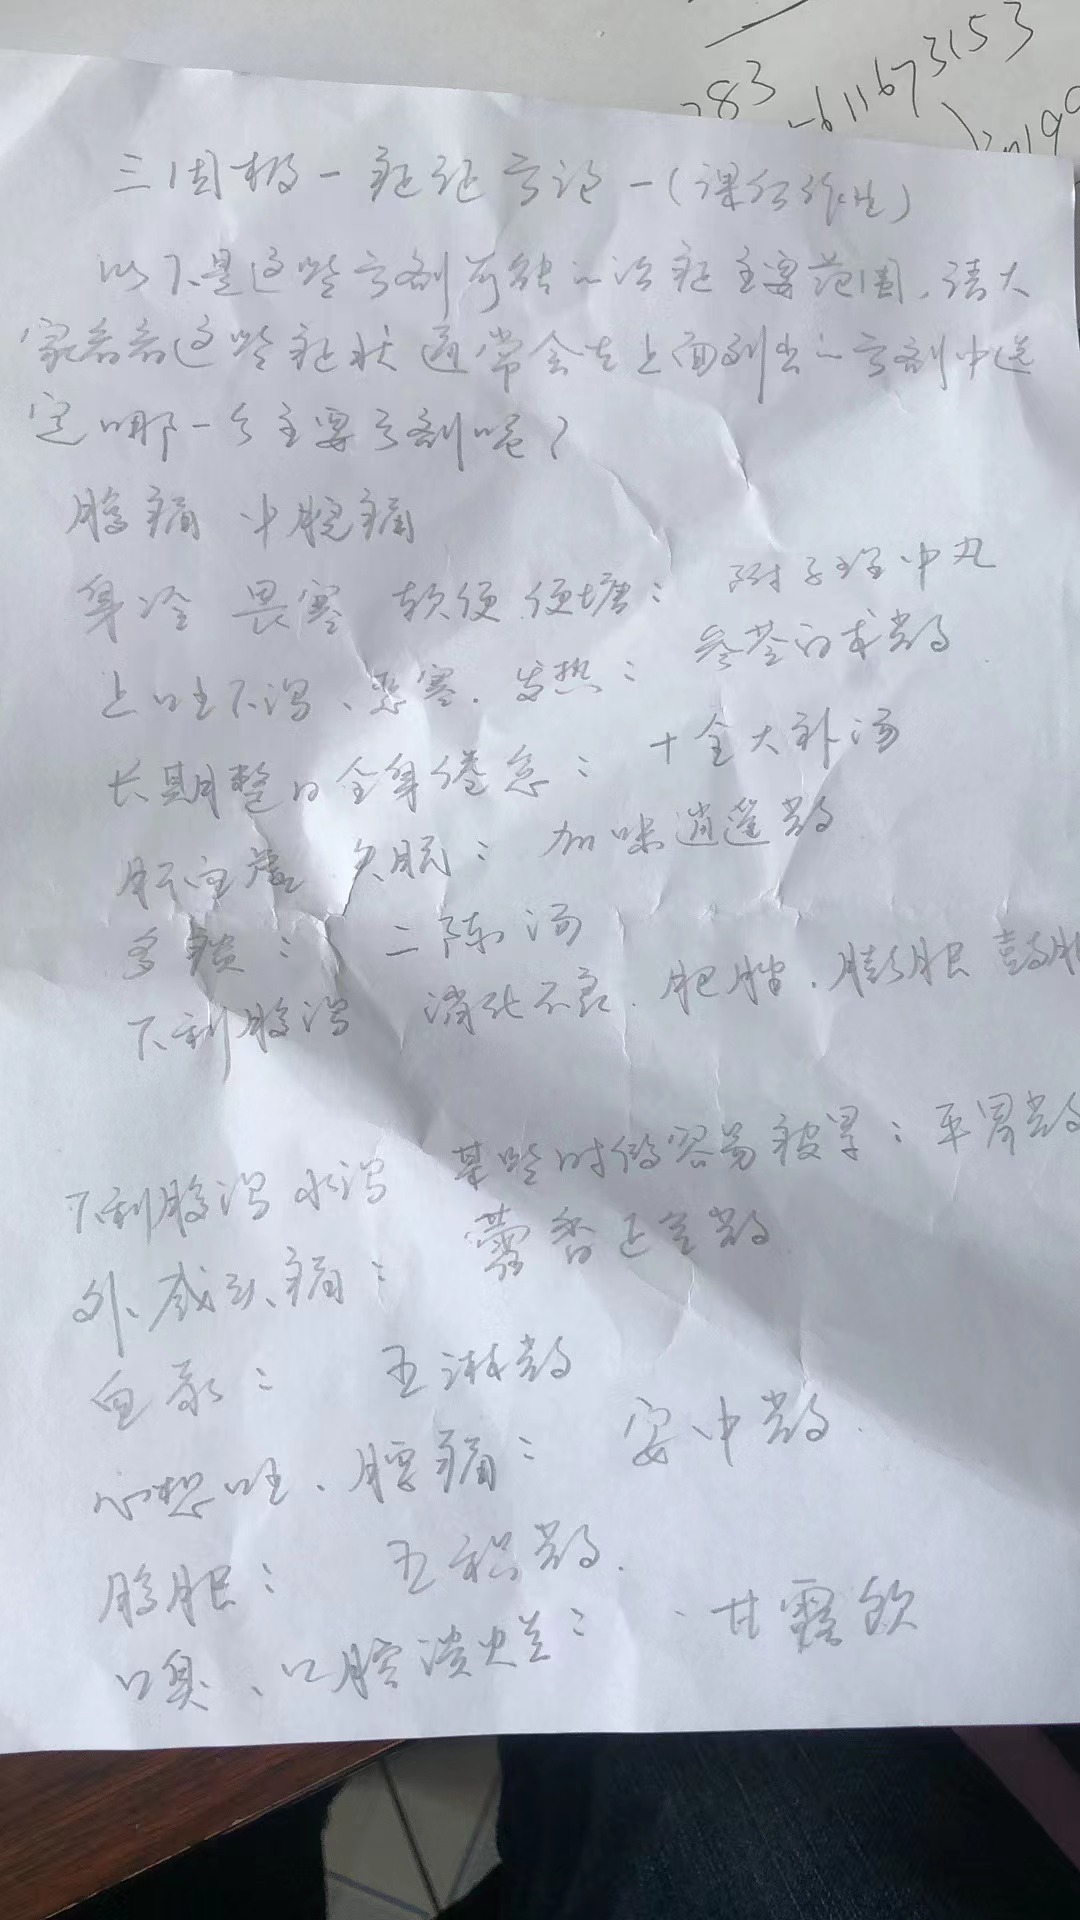 283
611673153
199
三因极一病证方论 一(课任作业)
以下是这些方剂可能的治症主要范围,请大
家看看这些症状通常会在上面列出的方剂中选
定哪一个主要方剂呢?
腹痛 中脘痛
身冷 畏寒 软便 便塘: 附子理中丸
上吐下泻、恶寒. 发热: 参苓白术散
长期整日全身倦怠: 十全大补汤
肝血虚 失眠: 加味逍遥散
多痰: 二陈汤
下利腹泻 消化不良. 肥胖. 膨胀 鼓胀
下利腹泻 水泻 某些时候容易被冒: 平胃散
外感头痛: 藿香正气散
血尿: 五淋散
心想吐、腰痛: 安中散.
腹胀: 五积散.
口臭、口腔溃烂: 甘露饮